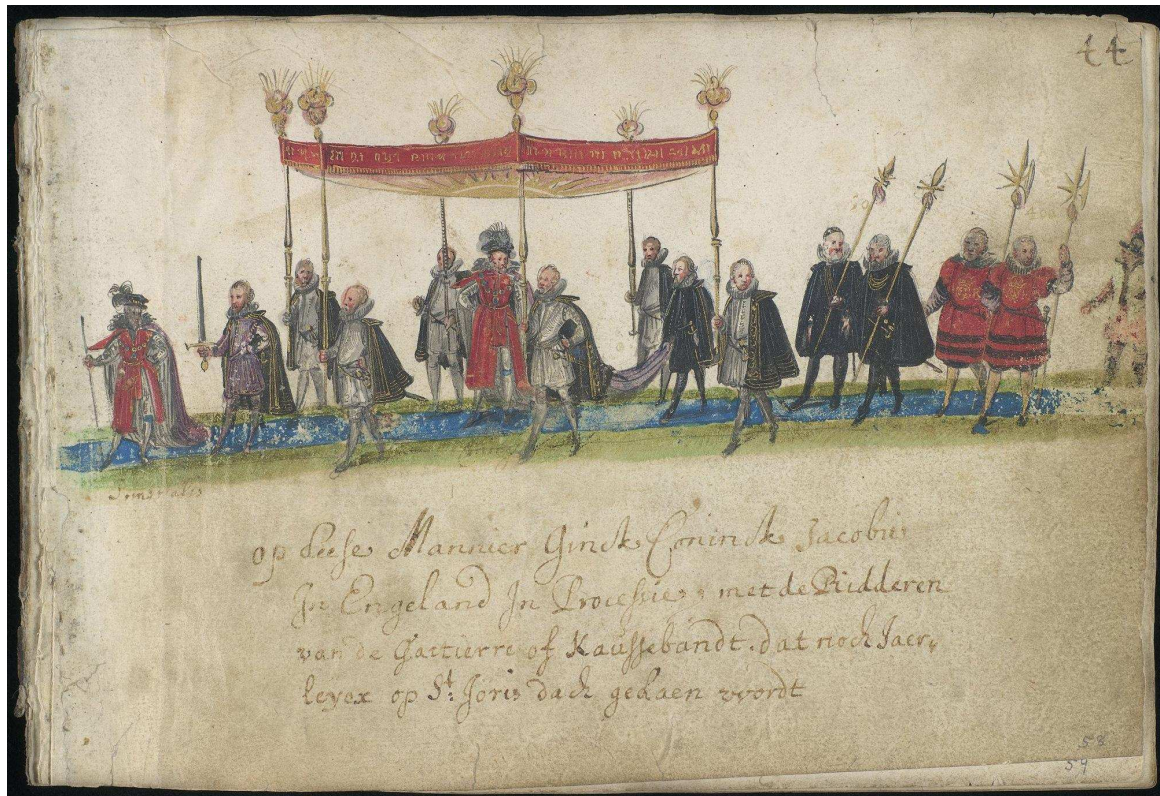 44
op deese Mannier Ginck Coninck Jacobus
In Engeland In Processie, met de Ridderen
van de Gartierre of Kaussebandt. dat noch Jaer„
leyex op St: Joris dach gedaen wordt
58
59